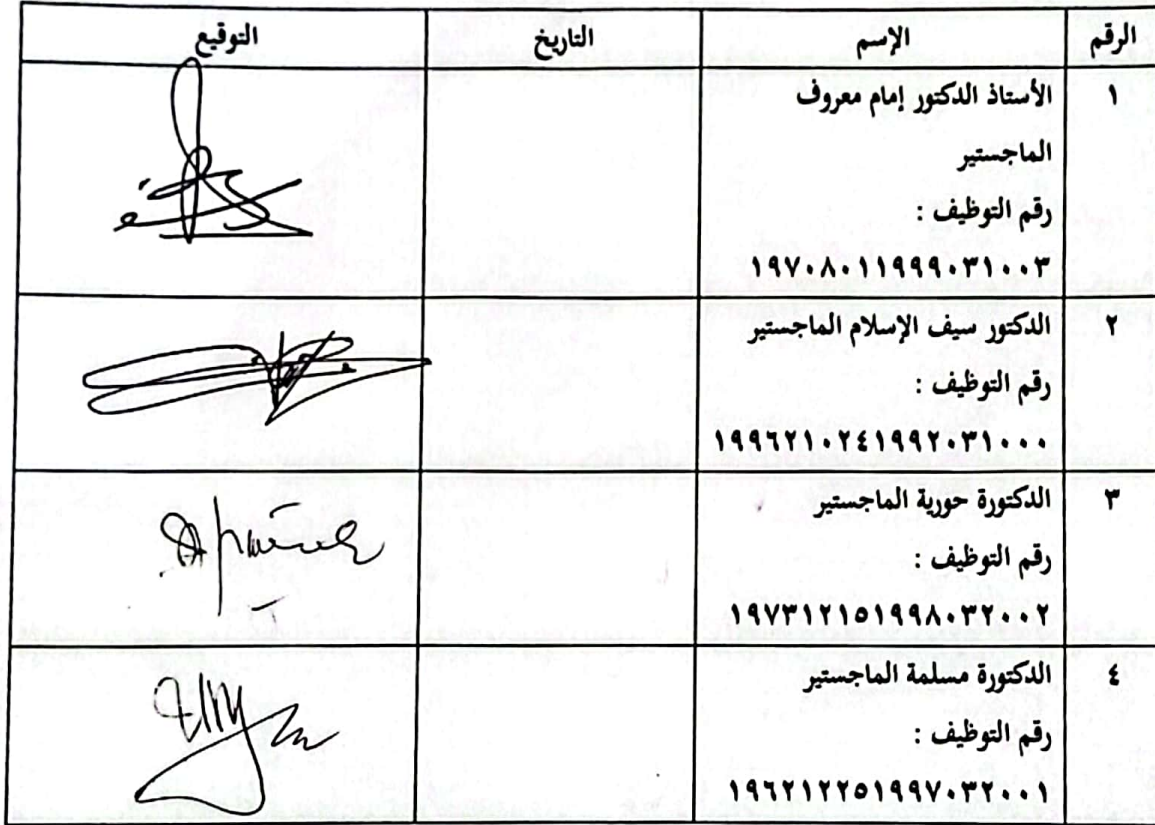 الرقم الإسم التاريخ التوقيع
١ الأستاذ الدكتور إمام معروف
الماجستير
رقم التوظيف :
١٩٧٠٨٠١١٩٩٩٠٣١٠٠٣
٢ الدكتور سيف الإسلام الماجستير
رقم التوظيف :
١٩٩٦٢١٠٢٤١٩٩٢٠٣١٠٠٠
٣ الدكتورة حورية الماجستير
رقم التوظيف :
١٩٧٣١٢١٥١٩٩٨٠٣٢٠٠٢
٤ الدكتورة مسلمة الماجستير
رقم التوظيف :
١٩٦٢١٢٢٥١٩٩٧٠٣٢٠٠١